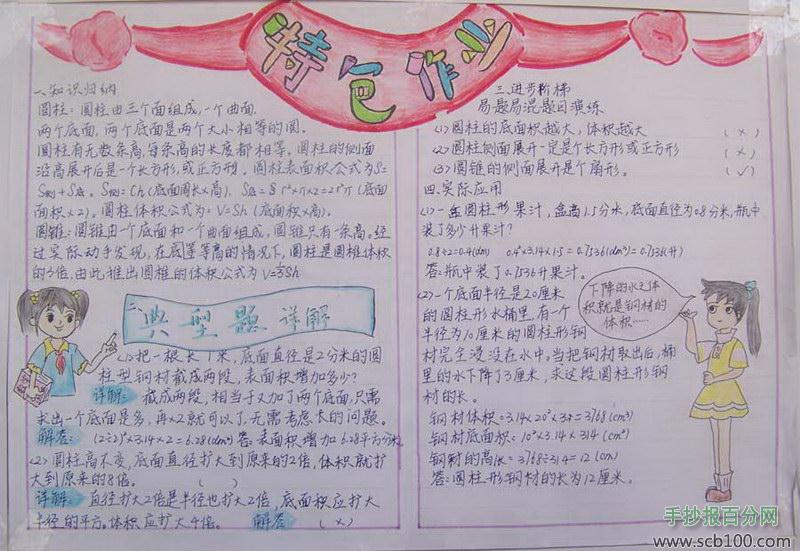 特色作业
一、知识归纳
圆柱：圆柱由三个面组成，一个曲面.
两个底面，两个底面是两个大小相等的圆.
圆柱有无数条高，每条高的长度都相等。圆柱的侧面
沿高展开后是一个长方形，或正方形。圆柱表面积公式为S=
S侧+S底。S侧=Ch(底面周长×高). S底=
面积×2)。圆柱体积公式为：V=Sh(底面积×高).
圆锥：圆锥由一个底面和一个曲面组成，圆锥只有一条高。经
过实际动手发现，在底等高的情况下，圆柱是圆椎体积
的3倍，由此推出圆椎的体积公式为V=⅓Sh
二、典型题详解
(1)把一根长1米，底面直径是2分米的圆
柱型钢材截成两段，表面积增加多少?
详解：截成两段，相当于又加了两个底面，只需
求出一个底面是多，再×2就可以了，无需考虑长的问题。
解答：(2÷2)²×3.14×2=6.28(dm²)答：表面积增加6.28平方分米
(2)圆柱高不变，底面直径扩大到原来的2倍，体积就扩
大到原来的8倍。 ( )
详解：直径扩大2倍是半径也扩大2倍，底面积应扩大
半径的平方。体积应扩大4倍。 解答 (×)
三、进步阶梯
易题易混题目演练
(1)圆柱的底面积越大，体积越大 (×)
(2)圆柱侧面展开一定是个长方形或正方形 (×)
(3)圆锥的侧面展开是个扇形。 (√)
四、实际应用
(1)一盒圆柱形果汁，盒高1.5分米，底面直径为0.8分米，瓶中
装了多少升果汁?
0.8÷2=0.4(dm) 0.4²×3.14×1.5=0.7536(dm³)=0.7536(升)
答：瓶中装了0.7536升果汁。
(2)一个底面半径是20厘米
的圆柱形水桶里，有一个
半径为10厘米的圆柱形钢
材完全浸没在水中，当把钢材取出后，桶
里的水下降了3厘米，求这段圆柱形钢
材的长。
钢材体积=3.14×20²×3=3768(cm³)
钢材底面积：10²×3.14=314(cm²)
钢材的高长=3768÷314=12(cm)
答：圆柱形钢材的长为12厘米。
下降的水之体
积就是钢材的
体积……
手抄报百分网
www.scb100.com